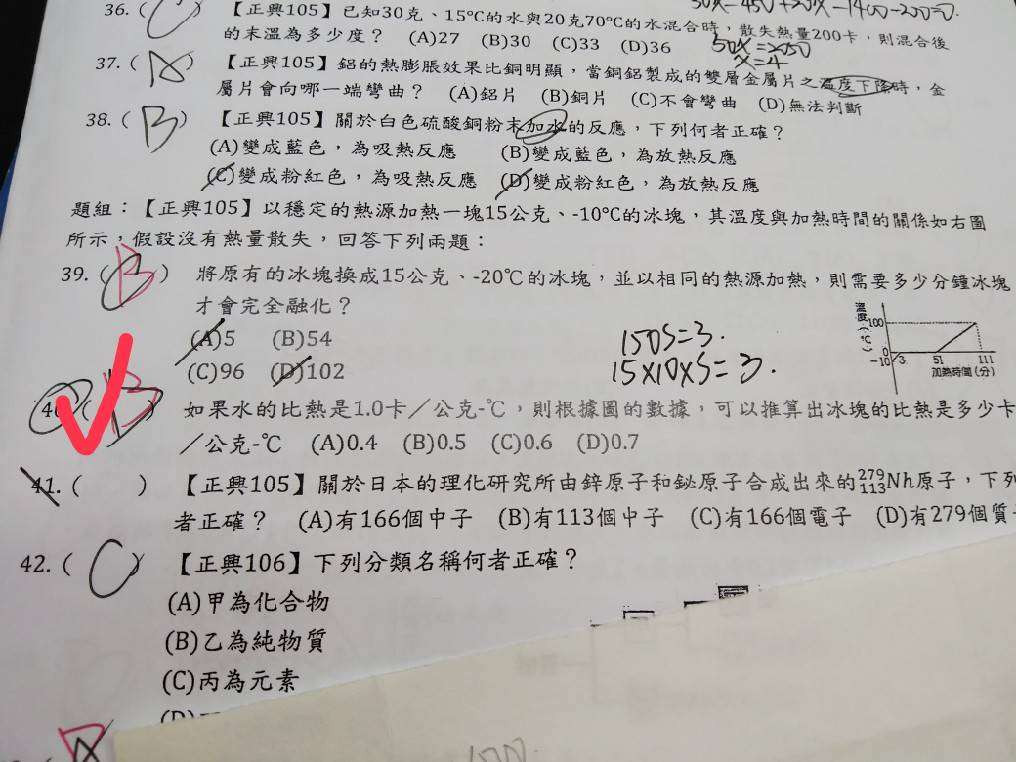 36. ( C ) 【正興105】已知30克、15℃的水與20克70℃的水混合時，散失熱量200卡，則混合後
的末溫為多少度？ (A)27 (B)30 (C)33 (D)36
50X=2050
37. ( A ) 【正興105】鋁的熱膨脹效果比銅明顯，當銅鋁製成的雙層金屬片之溫度下降時，金
屬片會向哪一端彎曲？ (A)鋁片 (B)銅片 (C)不會彎曲 (D)無法判斷
38. ( B ) 【正興105】關於白色硫酸銅粉末加水的反應，下列何者正確？
(A)變成藍色，為吸熱反應 (B)變成藍色，為放熱反應
(C)變成粉紅色，為吸熱反應 (D)變成粉紅色，為放熱反應
題組：【正興105】以穩定的熱源加熱一塊15公克、-10℃的冰塊，其溫度與加熱時間的關係如右圖
所示，假設沒有熱量散失，回答下列兩題：
39. ( B ) 將原有的冰塊換成15公克、-20℃的冰塊，並以相同的熱源加熱，則需要多少分鐘冰塊
才會完全融化？
(A)5 (B)54
(C)96 (D)102
150S=3.
15×10×S=3.
溫度(℃)
100
0
-10
3 51 111
加熱時間(分)
40 ( B ) 如果水的比熱是1.0卡／公克-℃，則根據圖的數據，可以推算出冰塊的比熱是多少卡
／公克-℃ (A)0.4 (B)0.5 (C)0.6 (D)0.7
41. ( ) 【正興105】關於日本的理化研究所由鋅原子和鉍原子合成出來的279 113Nh原子，下列
者正確？ (A)有166個中子 (B)有113個中子 (C)有166個電子 (D)有279個質
42. ( C ) 【正興106】下列分類名稱何者正確？
(A)甲為化合物
(B)乙為純物質
(C)丙為元素